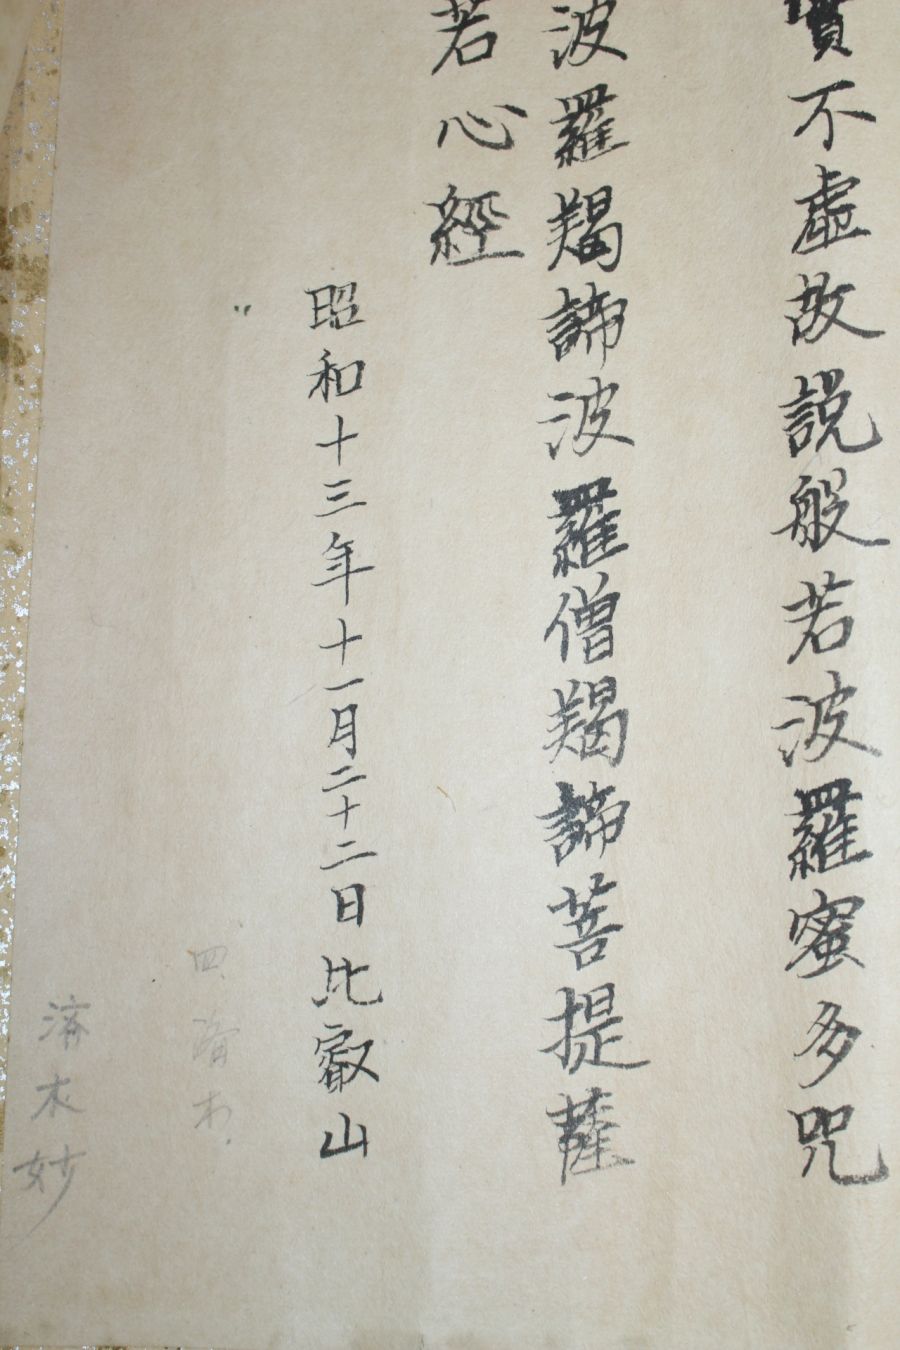 實不虛故説般若波羅蜜多咒
波羅羯諦波羅僧羯諦菩提薩
若心經
昭和十三年十一月二十二日比叡山
済木妙